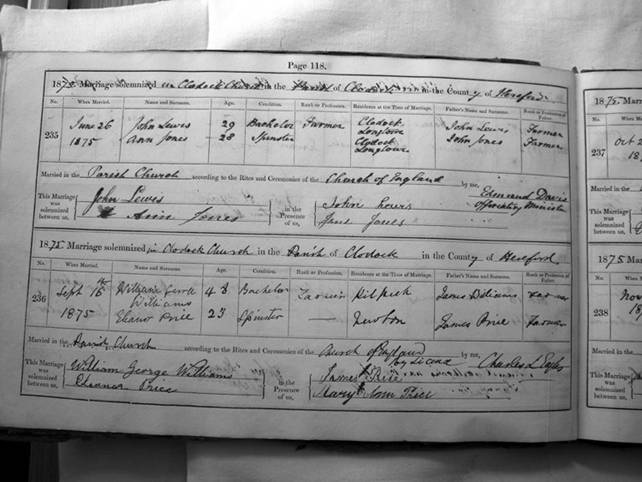 Page 118.
1875. Marriage solemnized in Clodock Church in the Parish of Clodock in the County of Hereford
No. When Married. Name and Surname. Age. Condition. Rank or Profession. Residence at the Time of Marriage. Father's Name and Surname. Rank or Profession of Father.
235 June 26 John Lewis 29 Bachelor Farmer Clodock Longtown John Lewis Farmer
1875 Ann Jones 28 Spinster Clodock Longtown John Jones Farmer
Married in the Parish Church according to the Rites and Ceremonies of the Church of England by me, Edmund Davis
Officiating Minister
This Marriage was solemnized between us, John Lewes Ann Jones in the Presence of us, John Jane Jones
1875. Marriage solemnized in Clodock Church in the Parish of Clodock in the County of Hereford
No. When Married. Name and Surname. Age. Condition. Rank or Profession. Residence at the Time of Marriage. Father's Name and Surname. Rank or Profession of Father.
236 Sept 16th William George Williams 43 Bachelor Farmer Kilpeck James Williams Farmer
1875 Eleanor Price 23 Spinster — Newton James Price Farmer
Married in the Parish Church according to the Rites and Ceremonies of the Church of England by Licence by me, Charles L Eagles
This Marriage was solemnized between us, William George Williams Eleanor Price in the Presence of us, James Price Mary Ann Price
187 Mar
No. When
237 Oct 2
18
Married in the
This Marriage was solemnized between us,
1875 M
No. When
238 Nov
18
Married in the
This Marriage was solemnized between us,